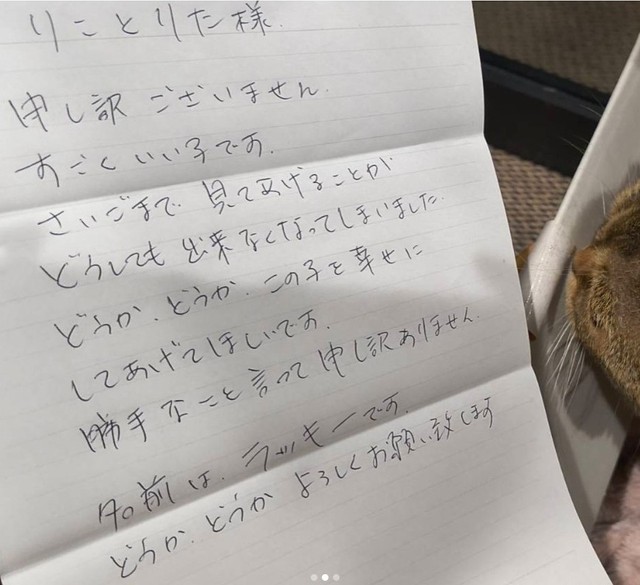 りことりた様.
申し訳ございません.
すごくいい子です.
さいごまで.見てあげることが
どうしても出来なくなってしまいました.
どうか.どうか.この子を幸せに
してあげてほしいです.
勝手なこと言って申し訳ありません.
名前は.ラッキーです.
どうか.どうかよろしくお願い致します